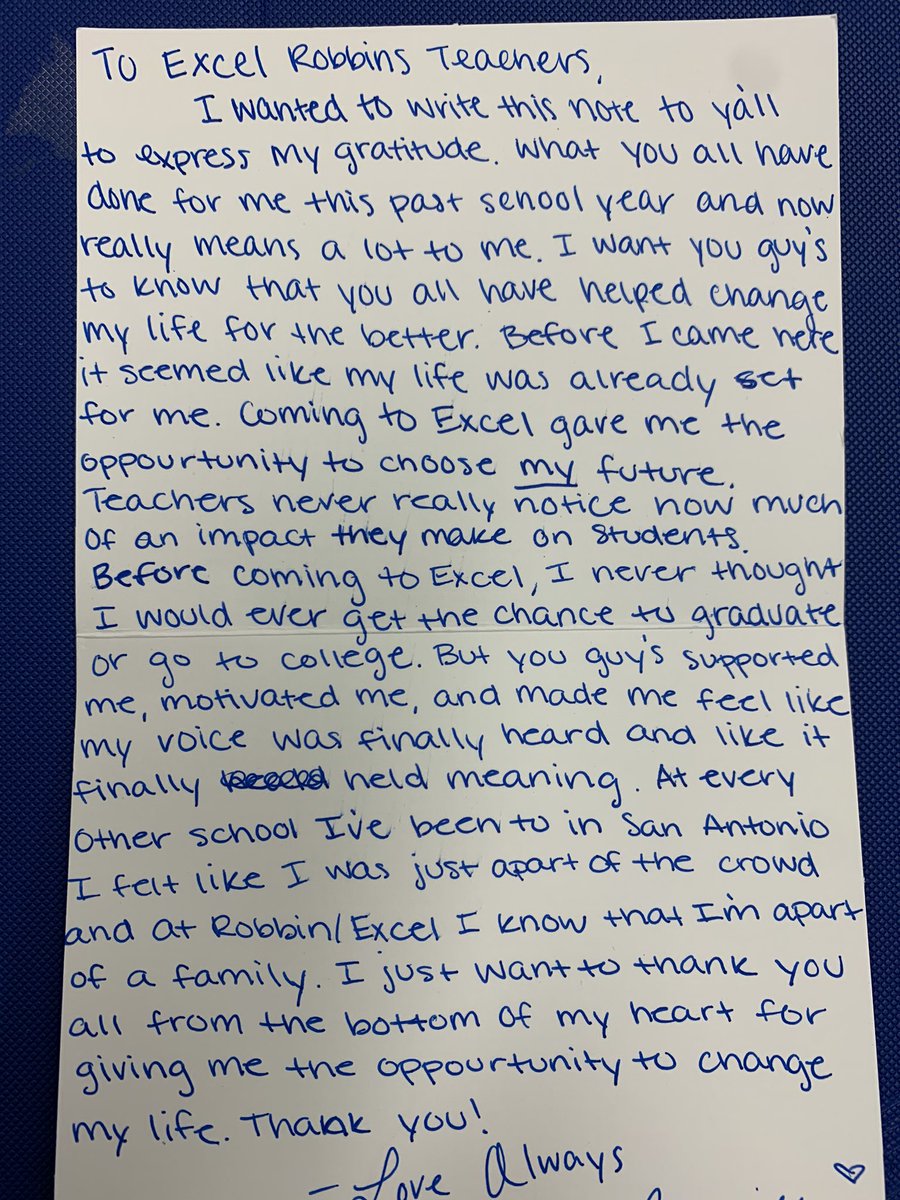 To Excel Robbins Teachers,
I wanted to write this note to ya'll
to express my gratitude. What you all have
done for me this past school year and now
really means a lot to me. I want you guy's
to know that you all have helped change
my life for the better. Before I came here
it seemed like my life was already set
for me. Coming to Excel gave me the
oppourtunity to choose my future.
Teachers never really notice how much
of an impact they make on students.
Before coming to Excel, I never thought
I would ever get the chance to graduate
or go to college. But you guy's supported
me, motivated me, and made me feel like
my voice was finally heard and like it
finally held meaning. At every
other school I've been to in San Antonio
I felt like I was just apart of the crowd
and at Robbin/Excel I know that I'm apart
of a family. I just want to thank you
all from the bottom of my heart for
giving me the oppourtunity to change
my life. Thank you!
- Love Always